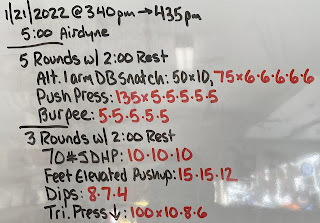 1/21/2022 @ 340pm → 435pm
5:00 Airdyne
5 Rounds w/ 2:00 Rest
Alt. 1 arm DB Snatch: 50x10, 75x6·6·6·6·6
Push Press: 135x5·5·5·5·5
Burpee: 5·5·5·5·5
3 Rounds w/ 2:00 Rest
70# JDHP: 10·10·10
Feet Elevated Pushup: 15·15·12
Dips: 8·7·4
Tri. Press ↓: 100x10·8·6